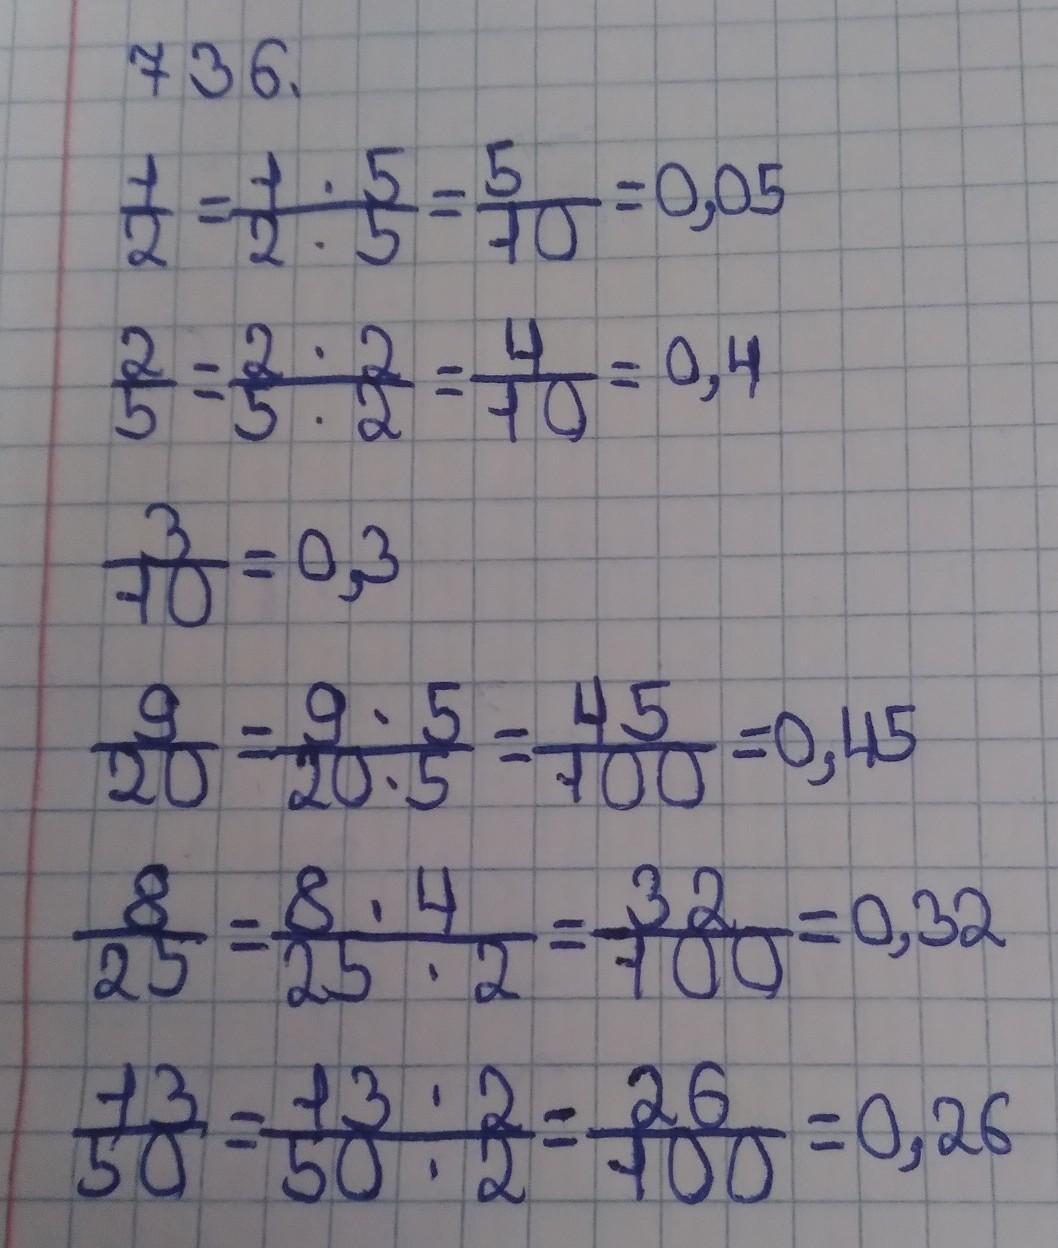 736.
1/2 = 1 · 5/2 · 5 = 5/10 = 0,05
2/5 = 2 · 2/5 · 2 = 4/10 = 0,4
3/10 = 0,3
9/20 = 9 · 5/20 · 5 = 45/100 = 0,45
8/25 = 8 · 4/25 · 2 = 32/100 = 0,32
13/50 = 13 · 2/50 · 2 = 26/100 = 0,26